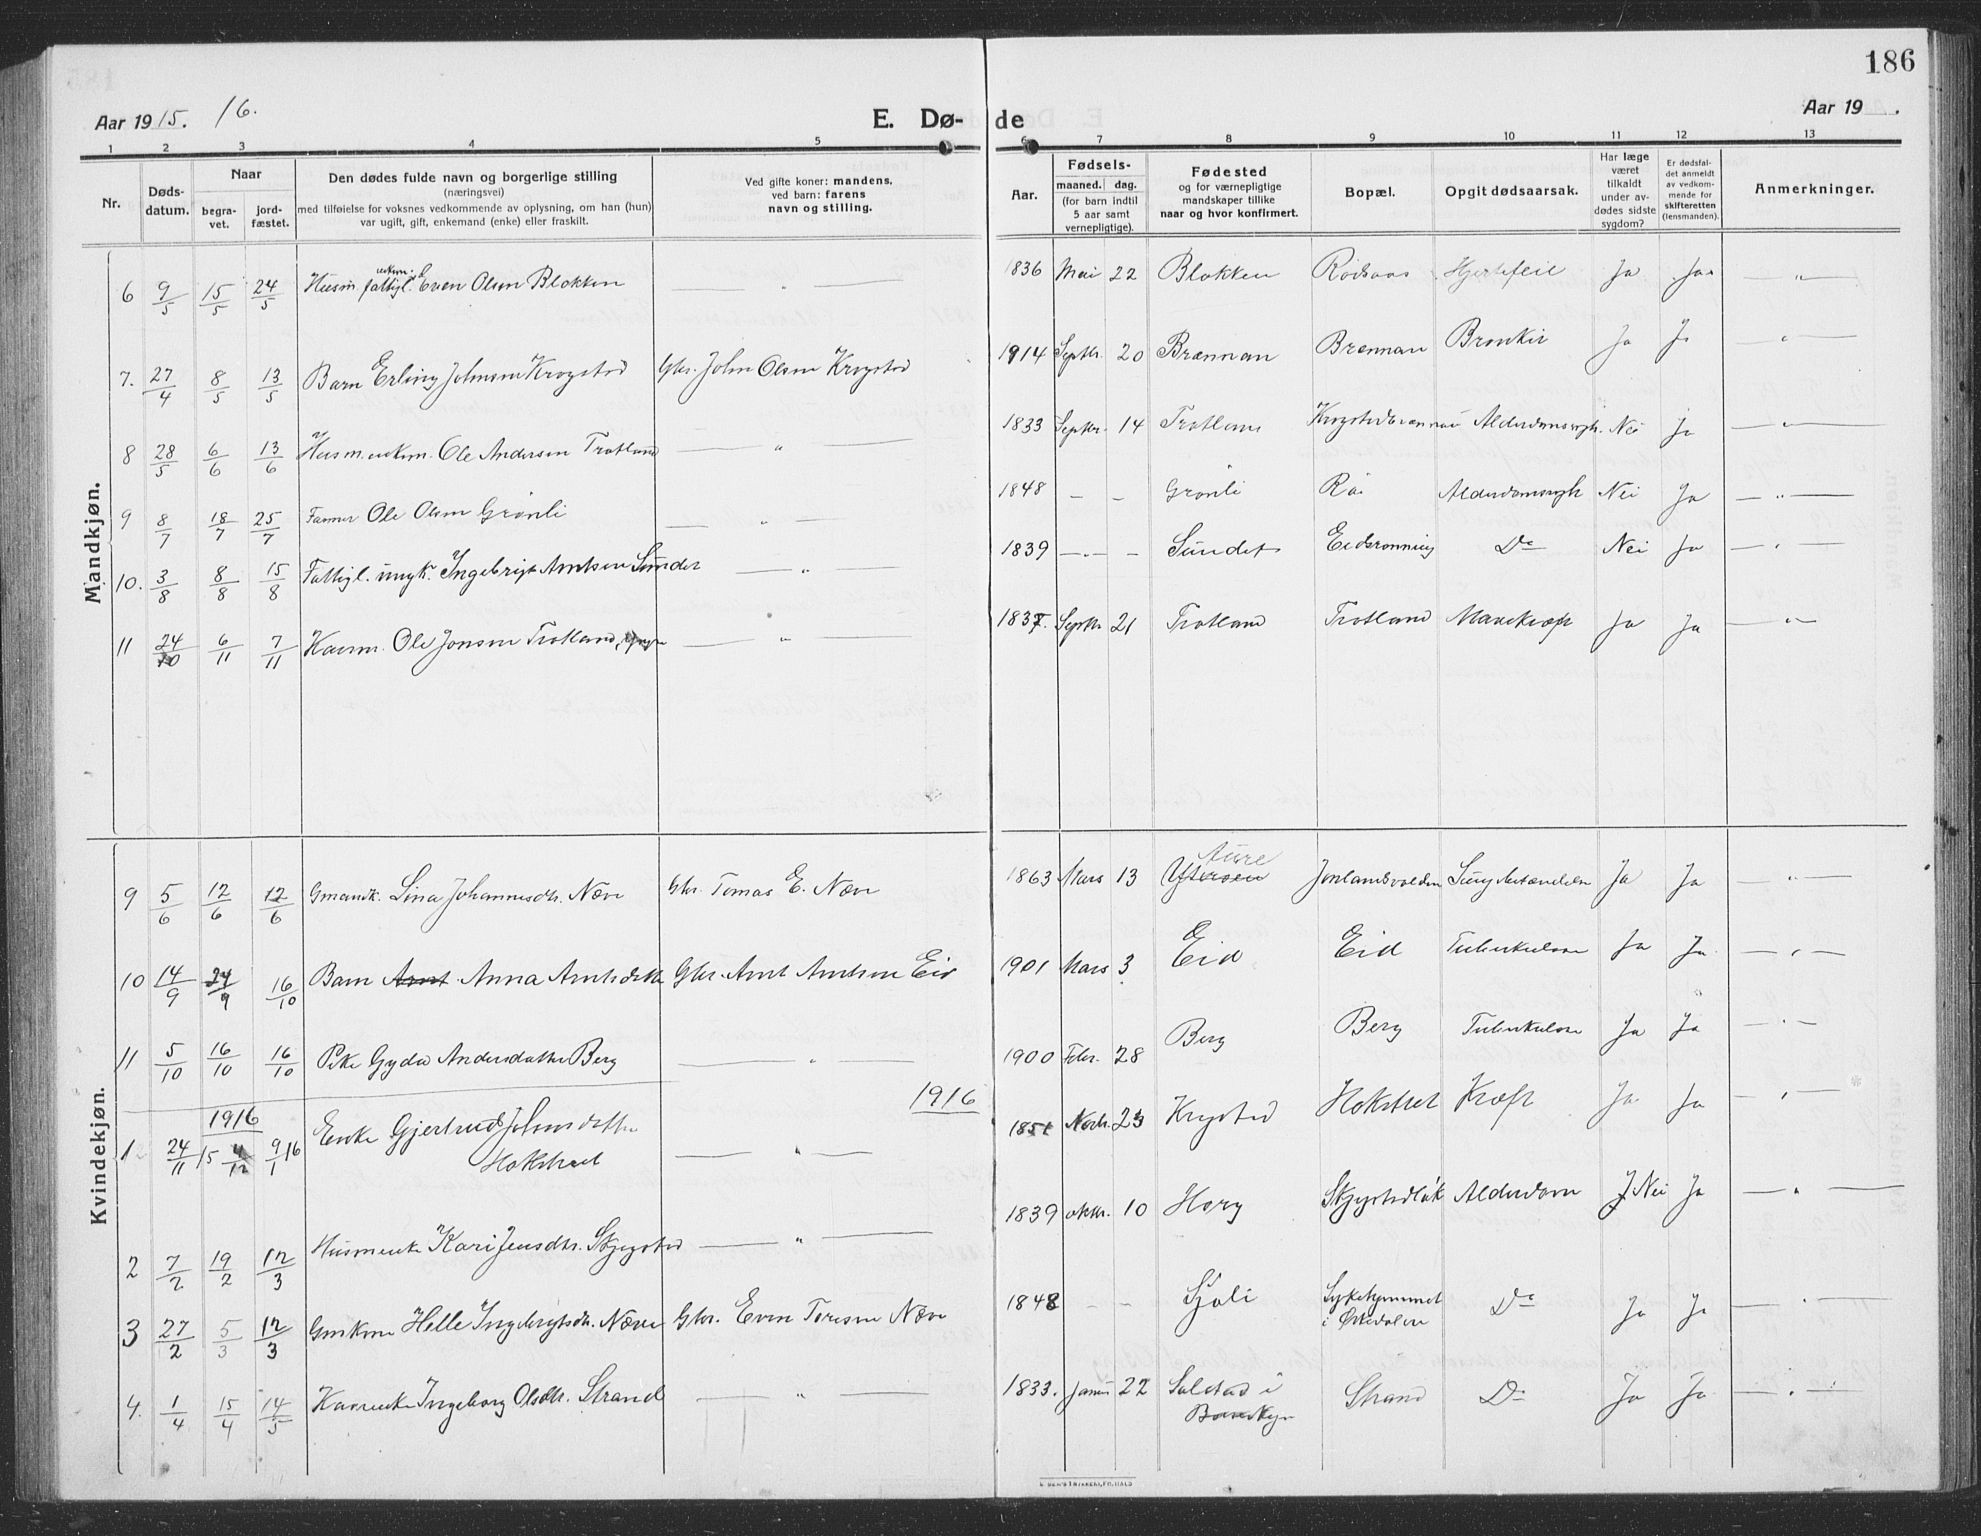 186
Aar 1915. 16.
E. Dø-de
Aar 19 .
1 2 3 4 5 6 7 8 9 10 11 12 13
Nr.
Døds-
datum.
Naar
begra-
vet.
jord-
fæstet.
Den dødes fulde navn og borgerlige stilling
(næringsvei)
med tilføielse for voksnes vedkommende av oplysning, om han (hun)
var ugift, gift, enkemand (enke) eller fraskilt.
Ved gifte koner: mandens,
ved barn: farens
navn og stilling.
Aar.
Fødsels-
maaned. dag.
(for barn indtil
5 aar samt
vernepligtige).
Fødested
og for værnepligtige
mandskaper tillike
naar og hvor konfirmert.
Bopæl.
Opgit dødsaarsak.
Har læge
været
tilkaldt
under av-
dødes sidste
sygdom?
Er dødsfal-
det anmeldt
av vedkom-
mende for
skifteretten
(lensmanden).
Anmerkninger.
Mandkjøn.
6 9/5 15/5 24/5 Husm. fattigl. Even Olsen Blokken — " — 1836 Mai 22 Blokken Rødsaas Hjertefeil Ja Ja "
7. 27/4 8/5 13/5 Barn Erling Johnsen Krogstad Gbr. John Olsen Krogstad 1914 Septbr. 20 Brennan Brennan Bronkit Ja Ja "
8 28/5 6/6 13/6 Husm. enkem. Ole Andersen Trotland — " — 1833 Septbr. 14 Trotland Alderdomssvgh. Nei Ja "
9 8/7 18/7 25/7 Farmer Ole Olsen Grønli — " — 1848 - - Grønli Rø Alderdomssvgh Nei Ja — " —
10. 3/8 8/8 15/8 Fattigl. ungk. Ingebrigt Arntsen Sundet — " — 1839 - - Sundet Eidsrønning Do Nei Ja — " —
11 24/10 6/11 7/11 Kaarm. Ole Jonsen Trotland — " — 1837. Septbr 21 Trotland Trotland Mavekræft Ja Ja — " —
Kvindekjøn.
9 5/6 12/6 12/6 Gmandk. Lina Johannesdtr. Næve Gbr. Tomas E. Næve 1863 Mars 13 Aure Jonlandsvolden Ja Ja — " —
10 14/9 24/9 16/10 Barn Arnt Anna Arntsdatter Gbr. Arnt Arntsen Eid 1901 Mars 3 Eid Eid Tuberkulose Ja Ja — " —
11 5/10 16/10 16/10 Pike Gyda Andersdatter Berg — " — 1900 Febr. 28 Berg Berg Tuberkulose Ja Ja — " —
1916 1916
1 24/11 15 4/12 9/1 16 Enke Gjertrud Johnsdatter
Hokstret — " — 1851 Novbr. 23 Krogstad Hokstret Kræft Ja Ja "
2 7/2 19/2 12/3 Husmenke Kari Jensdtr. Skjegstad — " — 1839 oktbr. 10 Horg Skjegstadløk Alderdom J Nei Ja — " —
3 27/2 5/3 12/3 Gmkone Helle Ingebrigtsdtr. Næve Gbr. Even Toresen Næve 1848 - - Sjøli Sykehjemmet
i Ørkedalen Do Ja Ja "
4. 1/4 15/4 14/5 Kaarenke Ingeborg Olsdtr. Strand — " — 1833. Januar 22 Solstad i Strand Do Ja Ja "